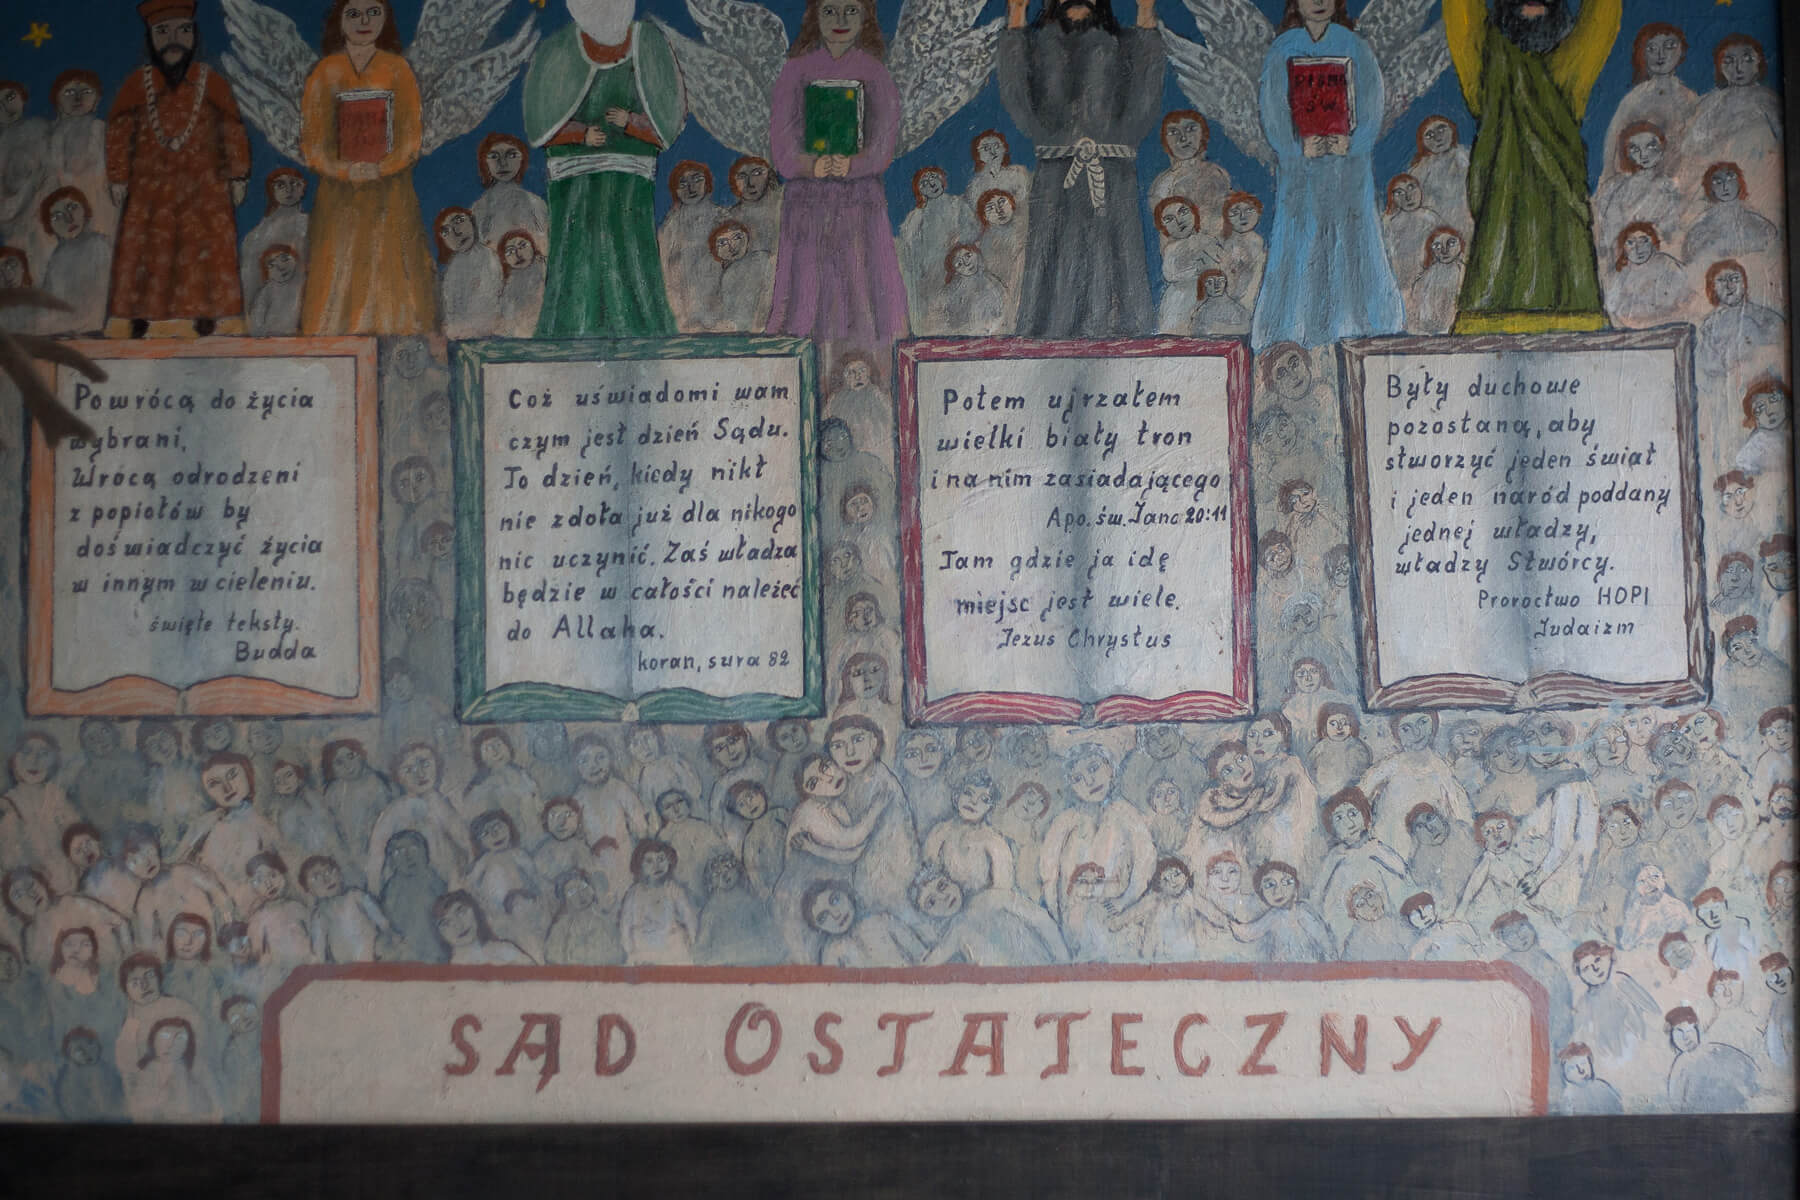 PISMO
ŚW.
Powrócą do życia
wybrani,
Wrócą odrodzeni
z popiołów by
doświadczyć życia
w innym wcieleniu.
święte teksty.
Budda
Coż uświadomi wam
czym jest dzień Sądu.
To dzień, kiedy nikt
nie zdoła już dla nikogo
nic uczynić. Zaś władza
będzie w całości należeć
do Allaha.
koran, sura 82
Potem ujrzałem
wielki biały tron
i na nim zasiadającego
Apo. św. Jana 20:11
Tam gdzie ja idę
miejsc jest wiele.
Jezus Chrystus
Były duchowe
pozostaną, aby
stworzyć jeden świat
i jeden naród poddany
jednej władzy,
władzy Stwórcy.
Proroctwo HOPI
Judaizm
SĄD OSTATECZNY